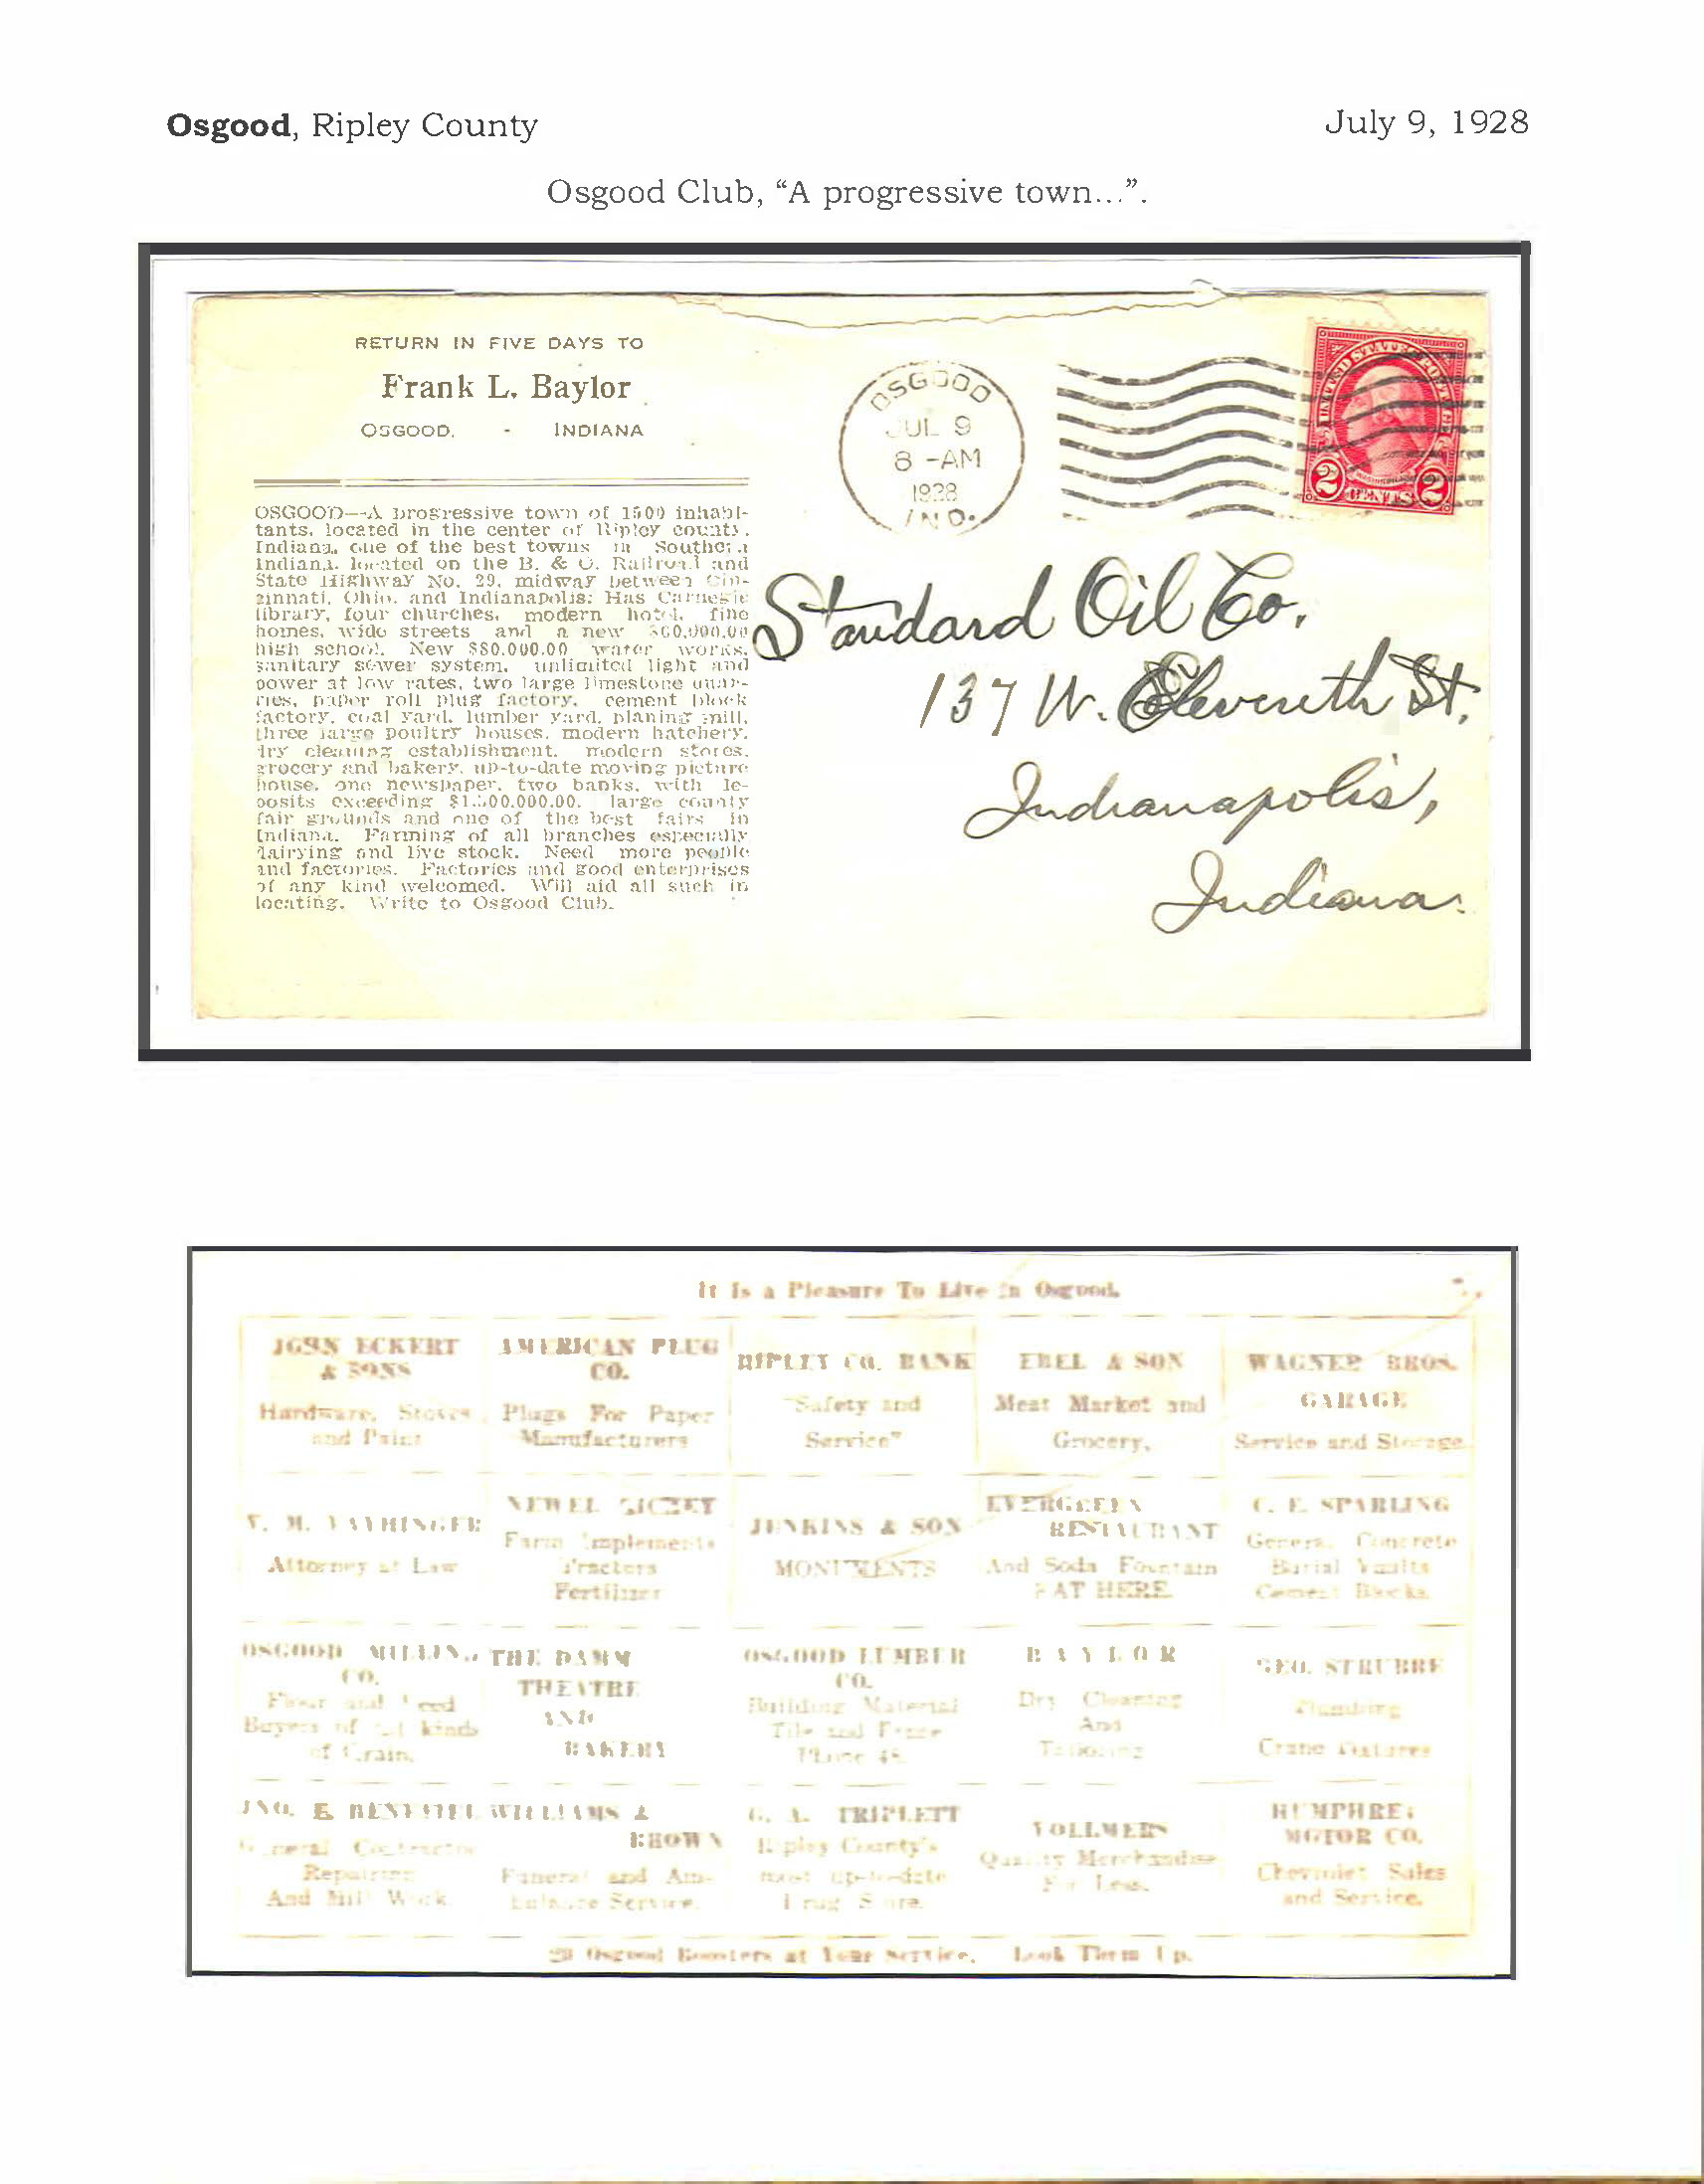 Osgood, Ripley County
July 9, 1928
Osgood Club, “A progressive town...”.
RETURN IN FIVE DAYS TO
Frank L. Baylor
OSGOOD, - INDIANA
OSGOOD
JUL 9
8 -AM
1928
IND.
UNITED STATES POSTAGE
2 CENTS 2
OSGOOD--A progressive town of 1500 inhabi-
tants, located in the center of Ripley county,
Indiana, one of the best towns in Southern
Indiana, located on the B. & O. Railroad and
State Highway No. 29, midway between Cin-
cinnati, Ohio, and Indianapolis: Has Carnegie
library, four churches, modern hotel, fine
homes, wide streets and a new
high school. New $80,000.00 water works,
sanitary sewer system, unlimited light and
power at low rates, two large limestone quar-
ries, paper roll plug factory, cement block
factory, coal yard, lumber yard, planing mill,
three large poultry houses, modern hatchery,
dry cleaning establishment, modern stores,
grocery and bakery, up-to-date moving picture
house, one newspaper, two banks, with de-
posits exceeding large county
fair grounds and one of the best fairs in
Indiana. Farming of all branches especially
dairying and live stock. Need more people
and factories. Factories and good enterprises
of any kind welcomed. Will aid all such in
locating. Write to Osgood Club.
Standard Oil Co.
137 W. Eleventh St.
Indianapolis,
Indiana.
It Is a Pleasure To Live in Osgood.
JOHN ECKERT
& SONS
Hardware, Stoves
and Paint
AMERICAN PLUG
CO.
Plugs For Paper
Manufacturers
RIPLEY CO. BANK
"Safety and
Service"
EBEL & SON
Meat Market and
Grocery.
WAGNER BROS.
GARAGE
Service and Storage
Attorney at Law
NEWEL
Farm Implements
Tractors
Fertilizer
JENKINS & SON
MONUMENTS
EVERGREEN
RESTAURANT
And Soda Fountain
EAT HERE
C. E. SPARLING
General Concrete
Burial Vaults
Cement Blocks
OSGOOD MILLING
CO.
Flour and Feed
Buyers of all kinds
of Grain.
THE DAMM
THEATRE
AND
BAKERY
OSGOOD LUMBER
CO.
Building Material
Tile and Fence
Phone 48
BAYLOR
Dry Cleaning
And
Tailoring
GEO. STRUBBE
Plumbing
Crane Fixtures
JNO. E.
General Contractor
Repairing
And Mill Work
WILLIAMS &
BROWN
Funeral and Am-
bulance Service.
G. A. TRIPLETT
Ripley County's
most up-to-date
Drug Store.
VOLLMERS
Quality Merchandise
For Less.
HUMPHREY
MOTOR CO.
Chevrolet Sales
and Service.
20 Osgood Boosters at Your Service. Look Them Up.